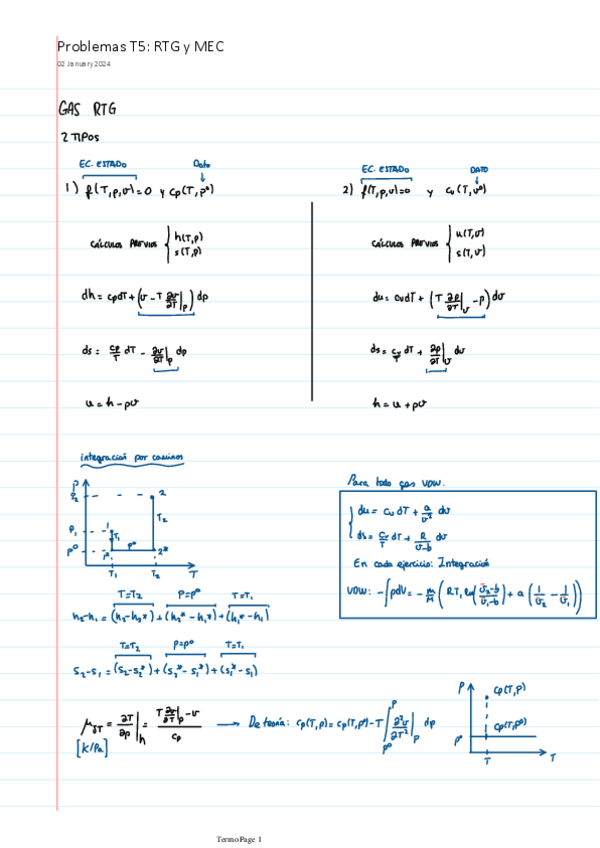 Problemas T5: RTG y MEC
02 January 2024
GAS RTG
2 TIPOS
EC. ESTADO Dato
1) f(T,p,v)=0 y cp(T,p°)
CÁLCULOS PREVIOS { h(T,p)
s(T,p)
dh = cpdT + (v - T ∂v/∂T|p) dp
ds = cp/T dT - ∂v/∂T|p dp
u = h - pv
EC. ESTADO DATO
2) f(T,p,v)=0 y cv(T,v°)
CÁLCULOS PREVIOS { u(T,v)
s(T,v)
du = cvdT + (T ∂p/∂T|v - p) dv
ds = cv/T dT + ∂p/∂T|v dv
h = u + pv
integración por caminos
P
P2 2
T2
P1 1 T1
p° 1* p° 2*
T1 T2 T
T=T2 P=p° T=T1
h2-h1 = (h2-h2*) + (h2*-h1*) + (h1*-h1)
T=T2 p=p° T=T1
s2-s1 = (s2-s2*) + (s2*-s1*) + (s1*-s1)
Para todo gas VDW.
du = cv dT + a/v² dv
ds = cv/T dT + R/v-b dv
En cada ejercicio: Integración
VDW: -∫pdV = -m/M (RT1 ln(v2-b/v1-b) + a (1/v2 - 1/v1))
μJT = ∂T/∂p|h = T ∂v/∂T|p - v / cp → De teoría: cp(T,p) = cp(T,p°) - T ∫p° p ∂²v/∂T²|p dp
[K/Pa]
P cp(T,p)
cp(T,p°)
p°
T T
TermoPage 1